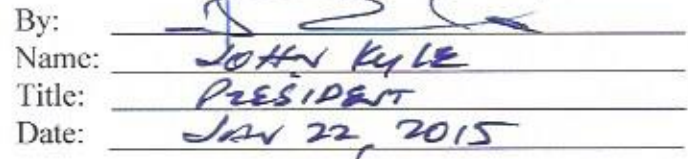 By:
Name: JOHN KYLE
Title: PRESIDENT
Date: JAN 22, 2015